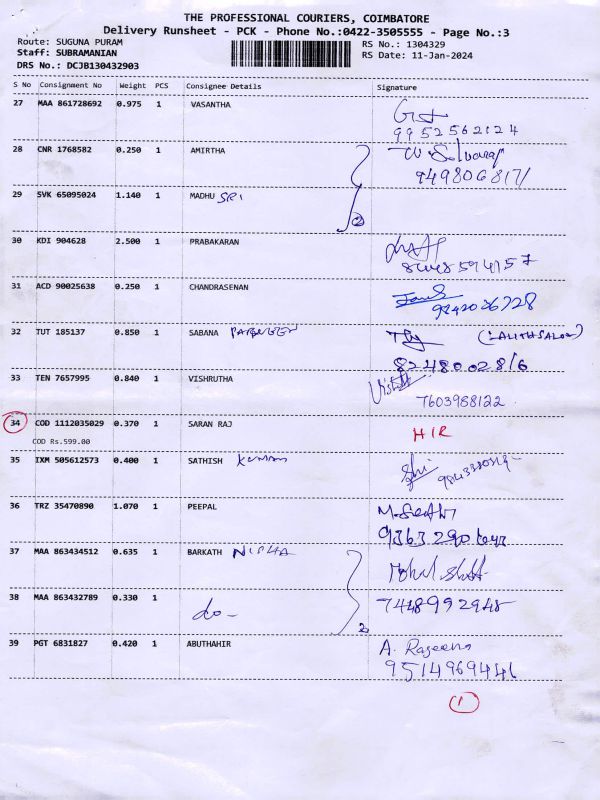 THE PROFESSIONAL COURIERS, COIMBATORE
Delivery Runsheet - PCK - Phone No.:0422-3505555 - Page No.:3
Route: SUGUNA PURAM
Staff: SUBRAMANIAN
DRS No.: DCJB130432903
RS No.: 1304329
RS Date: 11-Jan-2024
S No Consignment No Weight PCS Consignee Details Signature
27 MAA 861728692 0.975 1 VASANTHA
9952562124
28 CNR 1768582 0.250 1 AMIRTHA
29 SVK 65095024 1.140 1 MADHU SRI
2
30 KDI 904628 2.500 1 PRABAKARAN
31 ACD 90025638 0.250 1 CHANDRASENAN
9842036728
32 TUT 185137 0.850 1 SABANA
8248002816
33 TEN 7657995 0.840 1 VISHRUTHA
7603988122
34 COD 1112035029 0.370 1 SARAN RAJ HIR
COD Rs.599.00
35 IXM 505612573 0.400 1 SATHISH Kumar
36 TRZ 35470890 1.070 1 PEEPAL
37 MAA 863434512 0.635 1 BARKATH NISHA
38 MAA 863432789 0.330 1 do- 7448992948
2
39 PGT 6831827 0.420 1 ABUTHAHIR A. Rageena
9514969441
1